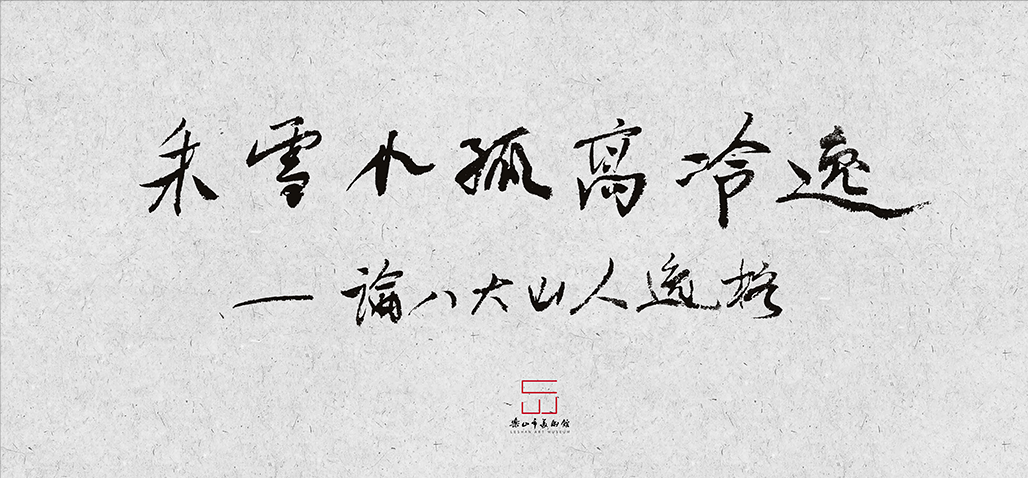 朱雪个孤高冷逸
—論八大山人逸格
樂山市美術館
LESHAN ART MUSEUM